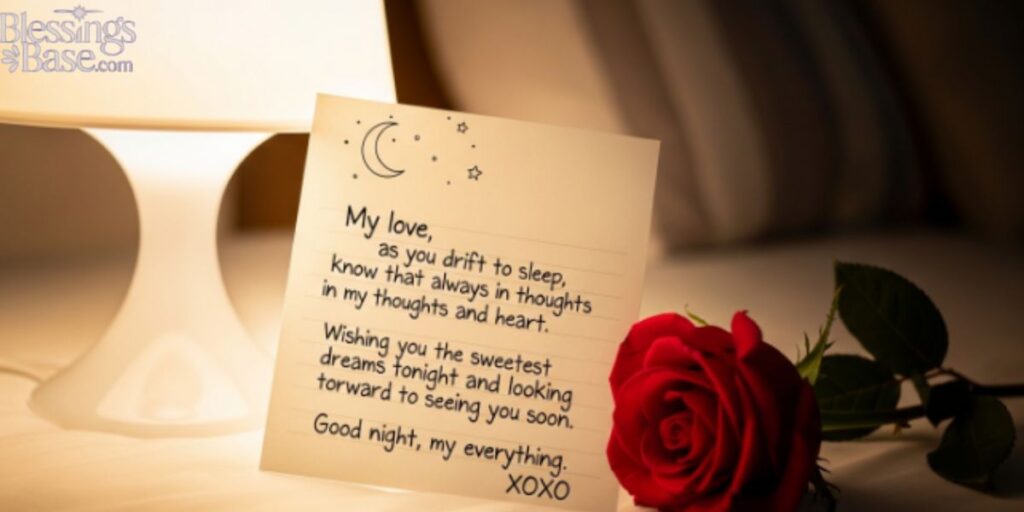 Blessings
Base.com
My love,
as you drift to sleep,
know that always in thoughts
in my thoughts and heart.
Wishing you the sweetest
dreams tonight and looking
torward to seeing you soon.
Good night, my everything.
XOXO